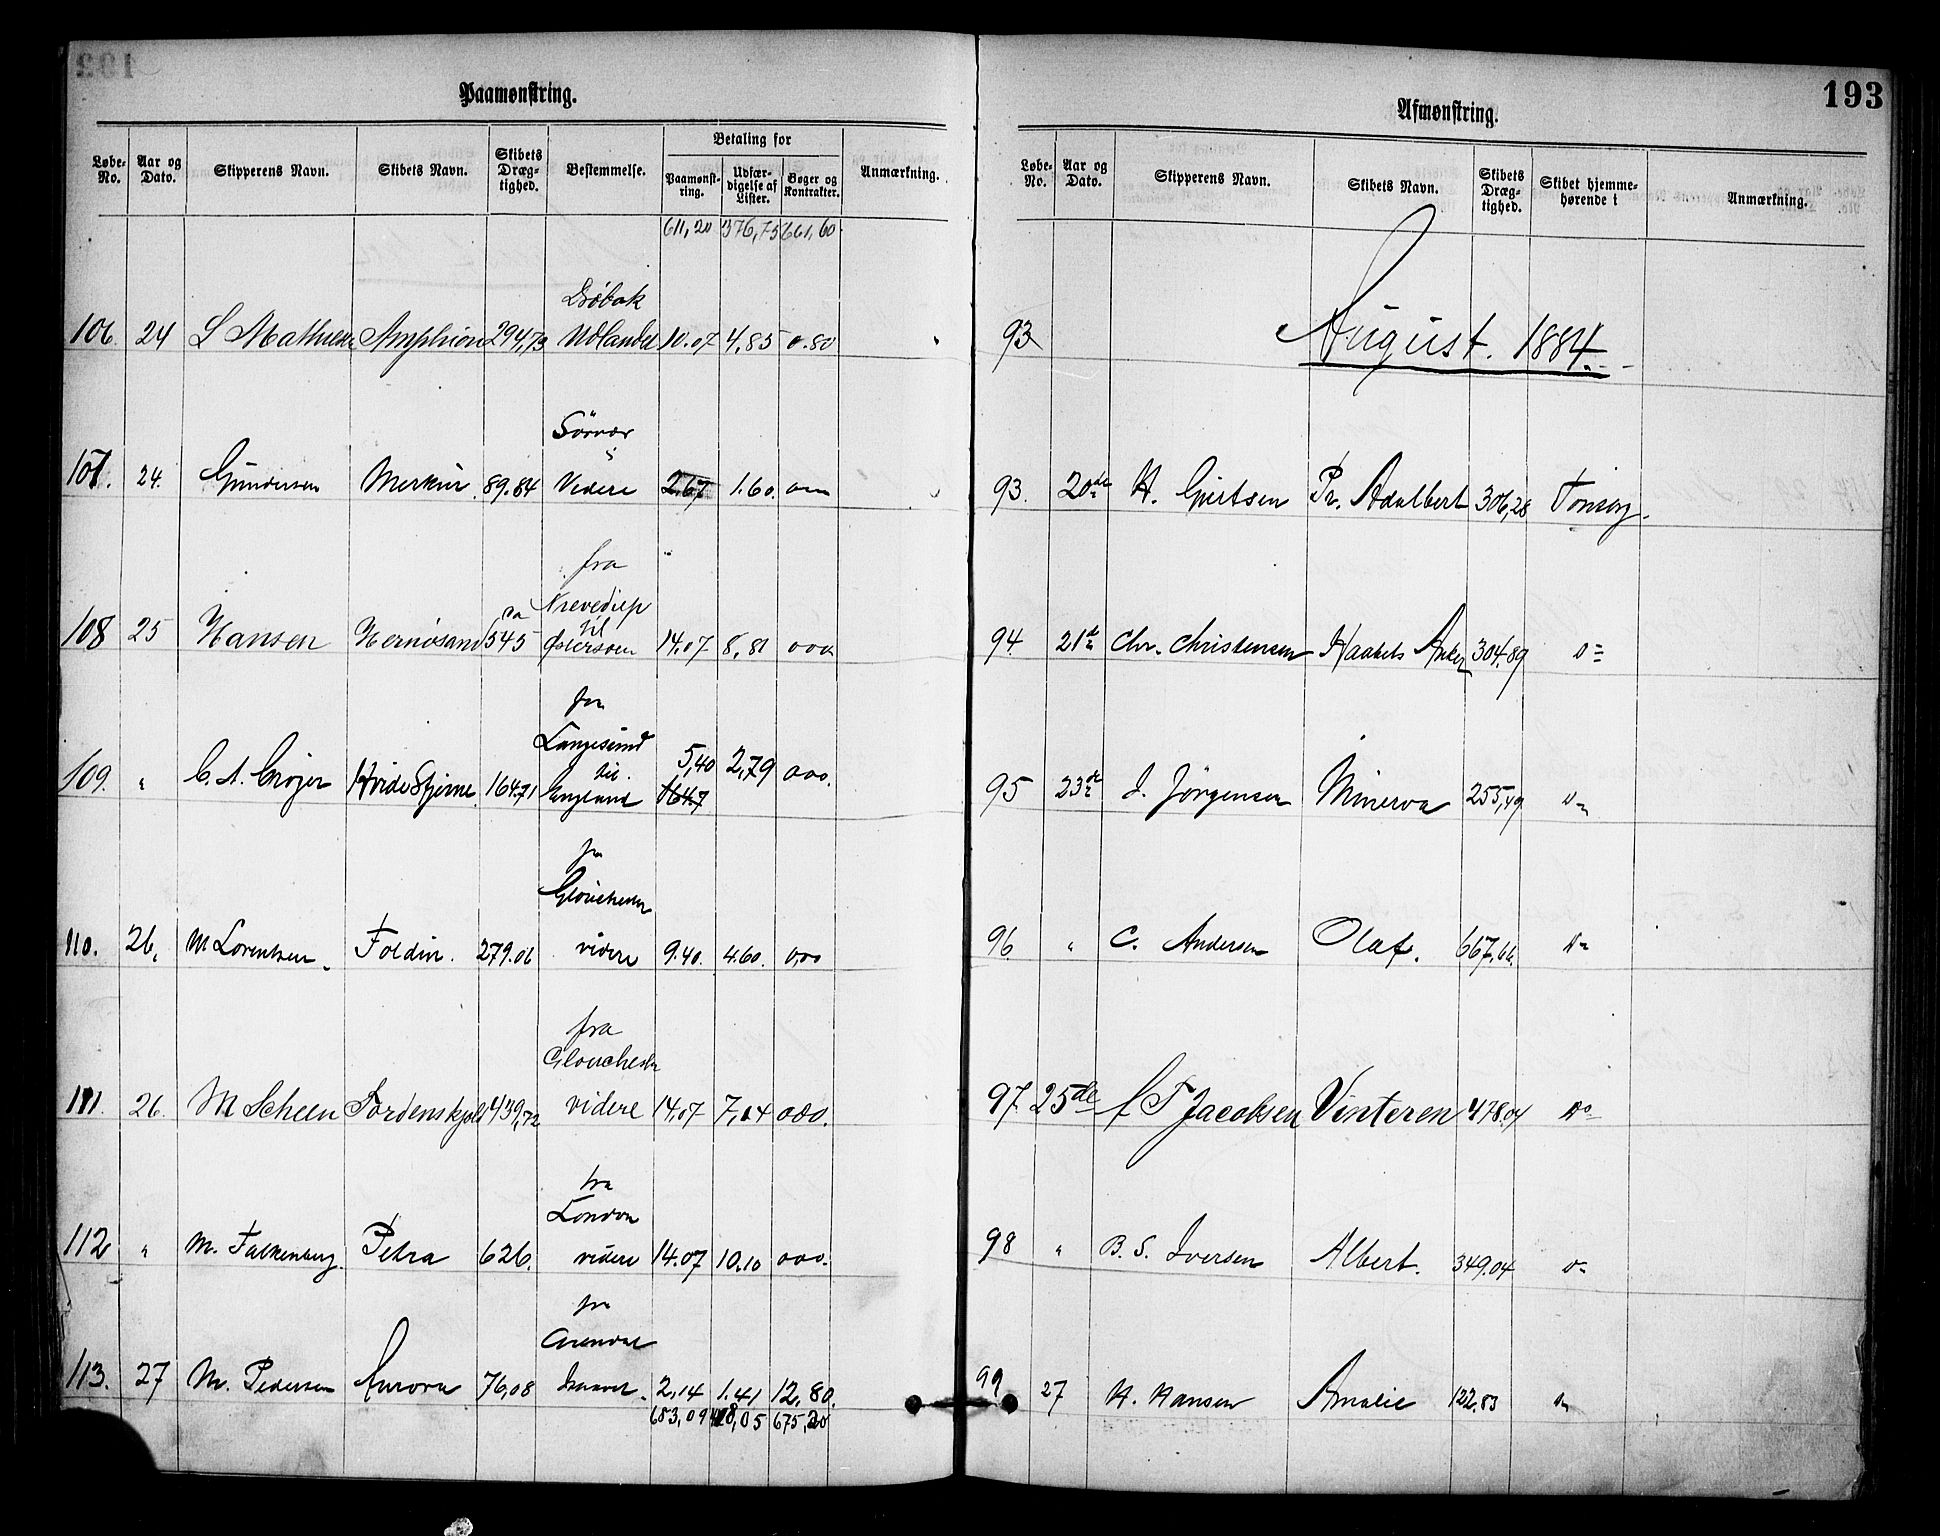 193
Paamønstring.
Løbe-No. Aar og Dato. Skipperens Navn. Skibets Navn. Skibets Dræg-tighed. Bestemmelse. Betaling for Anmærkning.
Paamønst-ring. Udfær-digelse af Lister. Bøger og Kontrakter.
611,20 376,75 661,60
Dröbak
106. 24 L Mathiesen Amphion 294,73 Udlandet 10.07 4,85 0.80
107. 24. Gundersen Merkur 89.84 Videre 2.67 1.60.
fra
Nievediep
til
108 25 Hansen Hernösand 545 Østersöen 14,07 8,81 000
fra
Langesund
til
109. " C. A. Crøjer Hvide Stjerne 164.71 England 5,40 2,79 000.
1647
fra
Glouchester
110. 26. M Lorentzen Foldin. 279.06 videre 9.40. 4.60. 0,00
fra
Glouchester
111. 26. M Scheen Tordenskjold 439,72 videre 14,07 7,14 000.
fra
London
112 " M. Falkenberg. Petra 626. videre 14.07 10.10 000.
fra
Arendal
113. 27 M. Pedersen Aurora 76,08 2,14 1.41 12,80.
683,09 418,05 675,20
Afmønstring.
Løbe-No. Aar og Dato. Skipperens Navn. Skibets Navn. Skibets Dræg-tighed. Skibet hjemme-hørende i Anmærkning.
93 August. 1884.
93. 20de H. Giertsen Pr. Adalbert 306,28 Tönsbg.
94. 21de Chr. Christensen Haabets Anker 304.89 Do
95 23de J. Jörgensen Minerva 255,49 Do
96 " C. Andersen Olaf. 667.66. Do
97. 25de T Jacobsen Vinteren 478.04 Do
98 " B. S. Iversen Albert. 349.04 Do
99. 27 H. Hansen Amalie 122.83 Do